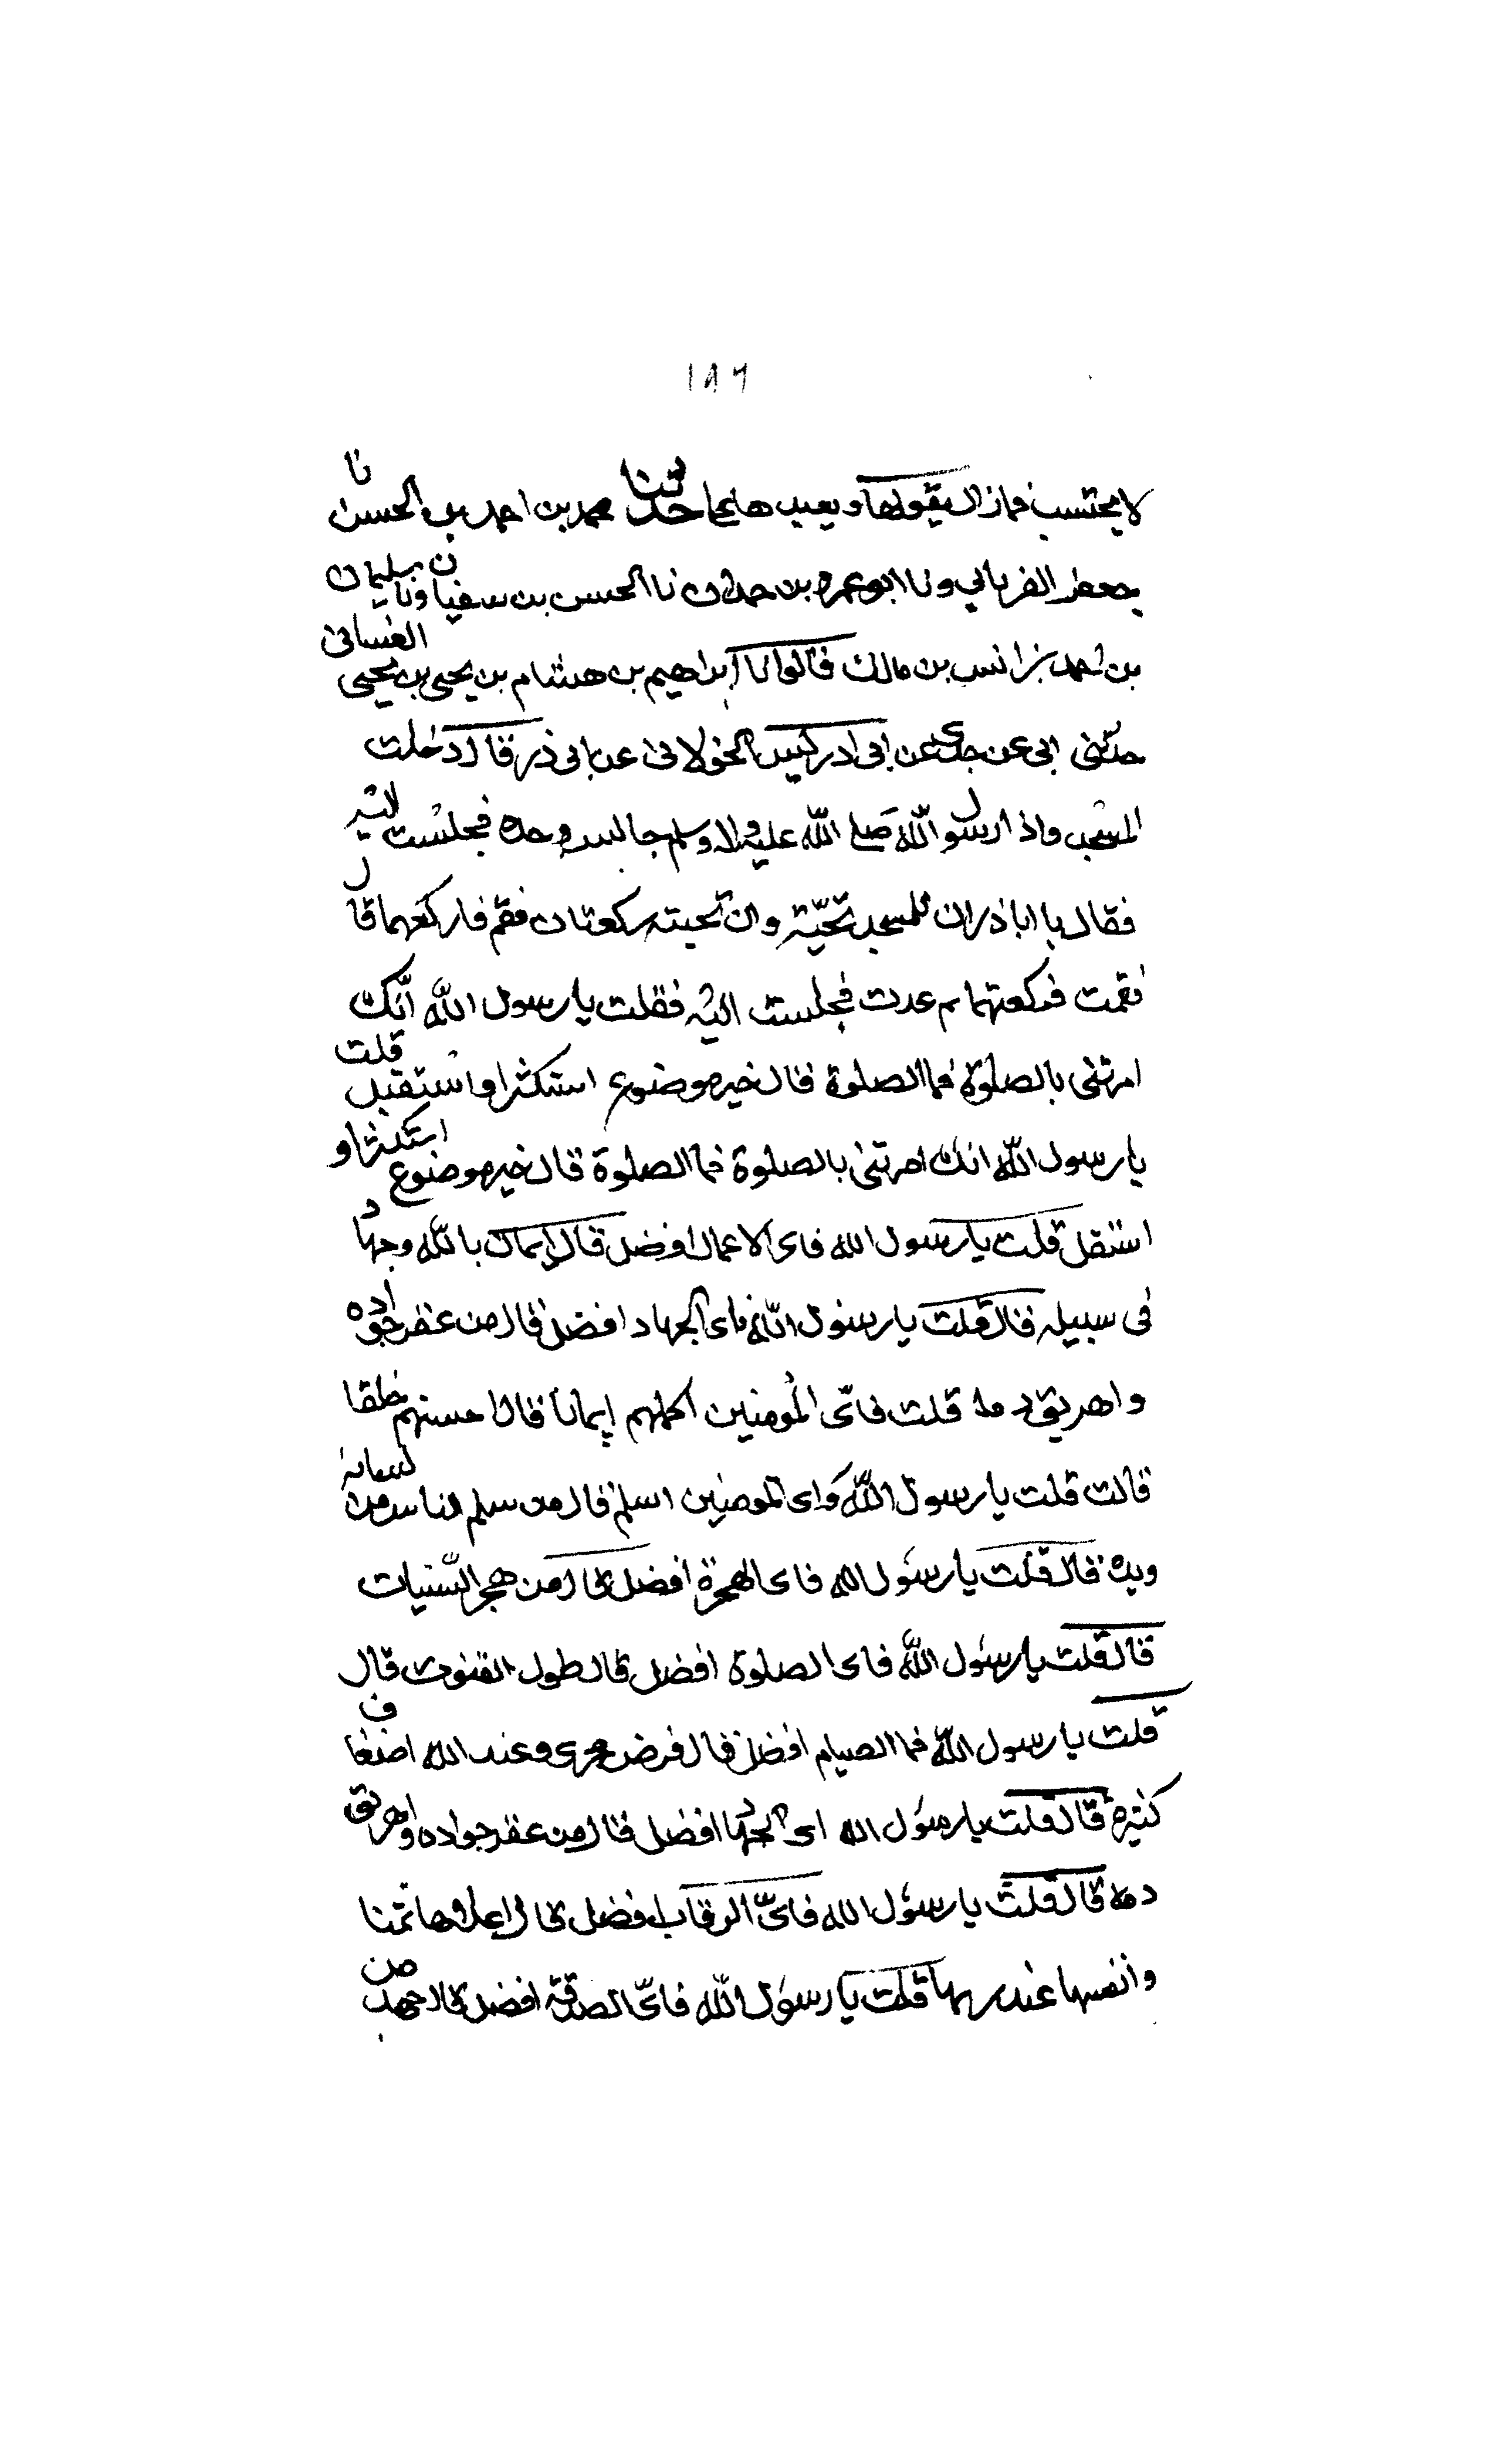 ١٨٦
لا يحتسب فمازال يقولها ويعيدها علي حدثنا محمد بن احمد بن الحسن نا
جعفر الفريابي ونا ابو عمرو بن حمدان نا الحسن بن سفيان ونا سليمان
بن احمد بن انس بن مالك قالوا نا ابراهيم بن هشام بن يحيى بن يحيى الغساني
حدثنى ابى عن جدى عن ابى ادريس الخولانى عن ابى ذر قال دخلت
المسجد واذا رسول الله صلى الله عليه واله وسلم جالس وحده فجلست اليه
فقال يا اباذر ان للمسجد تحيّة وان تحيته ركعتان فقم فاركعهما قال
فقمت فركعتهما ثم عدت فجلست اليه فقلت يا رسول الله انّك
امرتنى بالصلوة فما الصلوة قال خير موضوع استكثر او استقبل قلت
يا رسول الله انك امرتنى بالصلوة فما الصلوة قال خير موضوع استكثر او
استقل قلت يا رسول الله فاى الاعمال افضل قال ايمان بالله وجهاد
فى سبيله قال قلت يا رسول الله فاى الجهاد افضل قال من عقر جواده
واهريق دمه قلت فاىّ المؤمنين اكملهم ايمانا قال احسنهم خلقا
قالت قلت يا رسول الله واى المومنين اسلم قال من سلم الناس من لسانه
ويده قال قلت يا رسول الله فاى الهجرة افضل قال من هجر السّيئات
قال قلت يا رسول الله فاى الصلوة افضل قال طول القنوت قال
قلت يا رسول الله فما الصيام افضل قال فرض مجزى وعند الله اضعاف
كثيرة قال قلت يا رسول الله اى الجهاد افضل قال من عقر جواده واهريق
دمه قال قلت يا رسول الله فاىّ الرقاب افضل قال اعلاها ثمنا
وانفسها عند ربها قلت يا رسول الله فاىّ الصدقة افضل قال جهد من